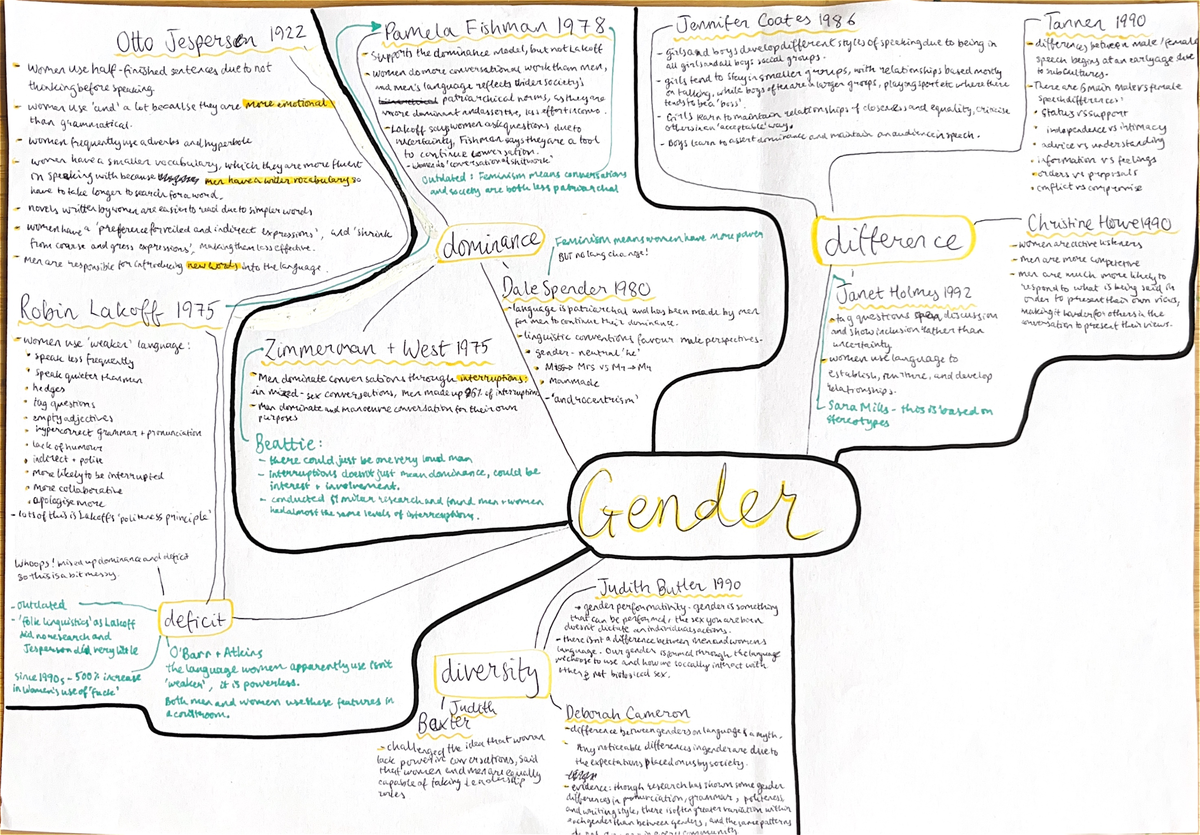 Otto Jespersen 1922
- women use half-finished sentences due to not
thinking before speaking
- women use 'and' a lot because they are more emotional
than grammatical.
- women frequently use adverbs and hyperbole
- women have a smaller vocabulary, which they are more fluent
on speaking with because men have a wider vocabulary so
have to take longer to search for a word.
- novels written by women are easier to read due to simpler words
- women have a 'preference for veiled and indirect expressions', and 'shrink
from coarse and gross expressions', making them less effective.
- Men are responsible for introducing new words into the language.
Robin Lakoff 1975
- women use 'weaker' language:
• speak less frequently
• speak quieter than men
• hedges
• tag questions
• empty adjectives
• hypercorrect grammar + pronunciation
• lack of humour
• indirect + polite
• more likely to be interrupted
• more collaborative
• apologise more
- lots of this is Lakoff's 'politeness principle'
Whoops! mixed up dominance and deficit
so this is a bit messy
deficit
- outdated
- 'folk linguistics' as Lakoff
did no research and
Jesperson did very little
since 1990s - 500% increase
in women's use of 'fuck'
O'Barr + Atkins
The language women apparently use isn't
'weaker', it is powerless.
Both men and women use these features in
a courtroom.
Pamela Fishman 1978
- Supports the dominance model, but not Lakoff
- women do more conversational work than men,
and men's language reflects wider society's
patriarchical norms, as they are
more dominant and assertive, less effort in convo
- Lakoff says women ask questions due to
uncertainty, Fishman says they are a tool
to continue conversation.
- women do 'conversational shitwork'
Outdated: Feminism means conversations
and society are both less patriarchal
dominance
Feminism means women have more power
BUT no lang change!
Dale Spender 1980
- language is patriarchal and has been made by men
for men to continue their dominance.
- linguistic conventions favour male perspectives.
• gender-neutral 'he'
• Miss → Mrs vs Mr → Mr
• Manmade
- 'androcentrism'
Zimmerman + West 1975
- Men dominate conversations through interruptions:
in mixed-sex conversations, men made up 96% of interruptions
- men dominate and maneuvre conversation for their own
purposes
Beattie:
- there could just be one very loud man
- interruptions doesn't just mean dominance, could be
interest + involvement.
- conducted similar research and found men + women
had almost the same levels of interruptions.
Jennifer Coates 1986
- Girls and boys develop different styles of speaking due to being in
all girls and all boys social groups.
- girls tend to stay in smaller groups, with relationships based mostly
on talking, while boys often are in larger groups, playing sport etc where there
tends to be a 'boss'.
- Girls learn to maintain relationships of closeness and equality, criticise
others in an 'acceptable' way.
- Boys learn to assert dominance and maintain an audience in speech.
Tannen 1990
- differences between male/female
speech begins at an early age due
to subcultures.
- There are 6 main male vs female
speech differences:
• Status vs support
• independence vs intimacy
• advice vs understanding
• information vs feelings
• orders vs proposals
• conflict vs compromise
difference
Christine Howe 1990
- women are active listeners
- men are more competitive
- men are much more likely to
respond to what is being said in
order to present their own views,
making it harder for others in the
conversation to present their views.
Janet Holmes 1992
- tag questions open discussion
and show inclusion rather than
uncertainty.
- women use language to
establish, nurture, and develop
relationships.
- Sara Mills - this is based on
stereotypes
Gender
diversity
Judith Butler 1990
→ gender performativity - gender is something
that can be performed, the sex you are born
doesn't dictate an individual's actions.
- there isn't a difference between men and women's
language. Our gender is formed through the language
we choose to use and how we socially interact with
others, not biological sex.
Judith
Baxter
- challenged the idea that women
lack powerful conversations, said
that women and men are equally
capable of taking leadership
roles
Deborah Cameron
- difference between genders on language is a myth.
- Any noticeable differences in gender are due to
the expectations placed on us by society.
- evidence: though research has shown some gender
differences in pronunciation, grammar, politeness
and writing style, there is often greater variation within
each gender than between genders, and the same patterns